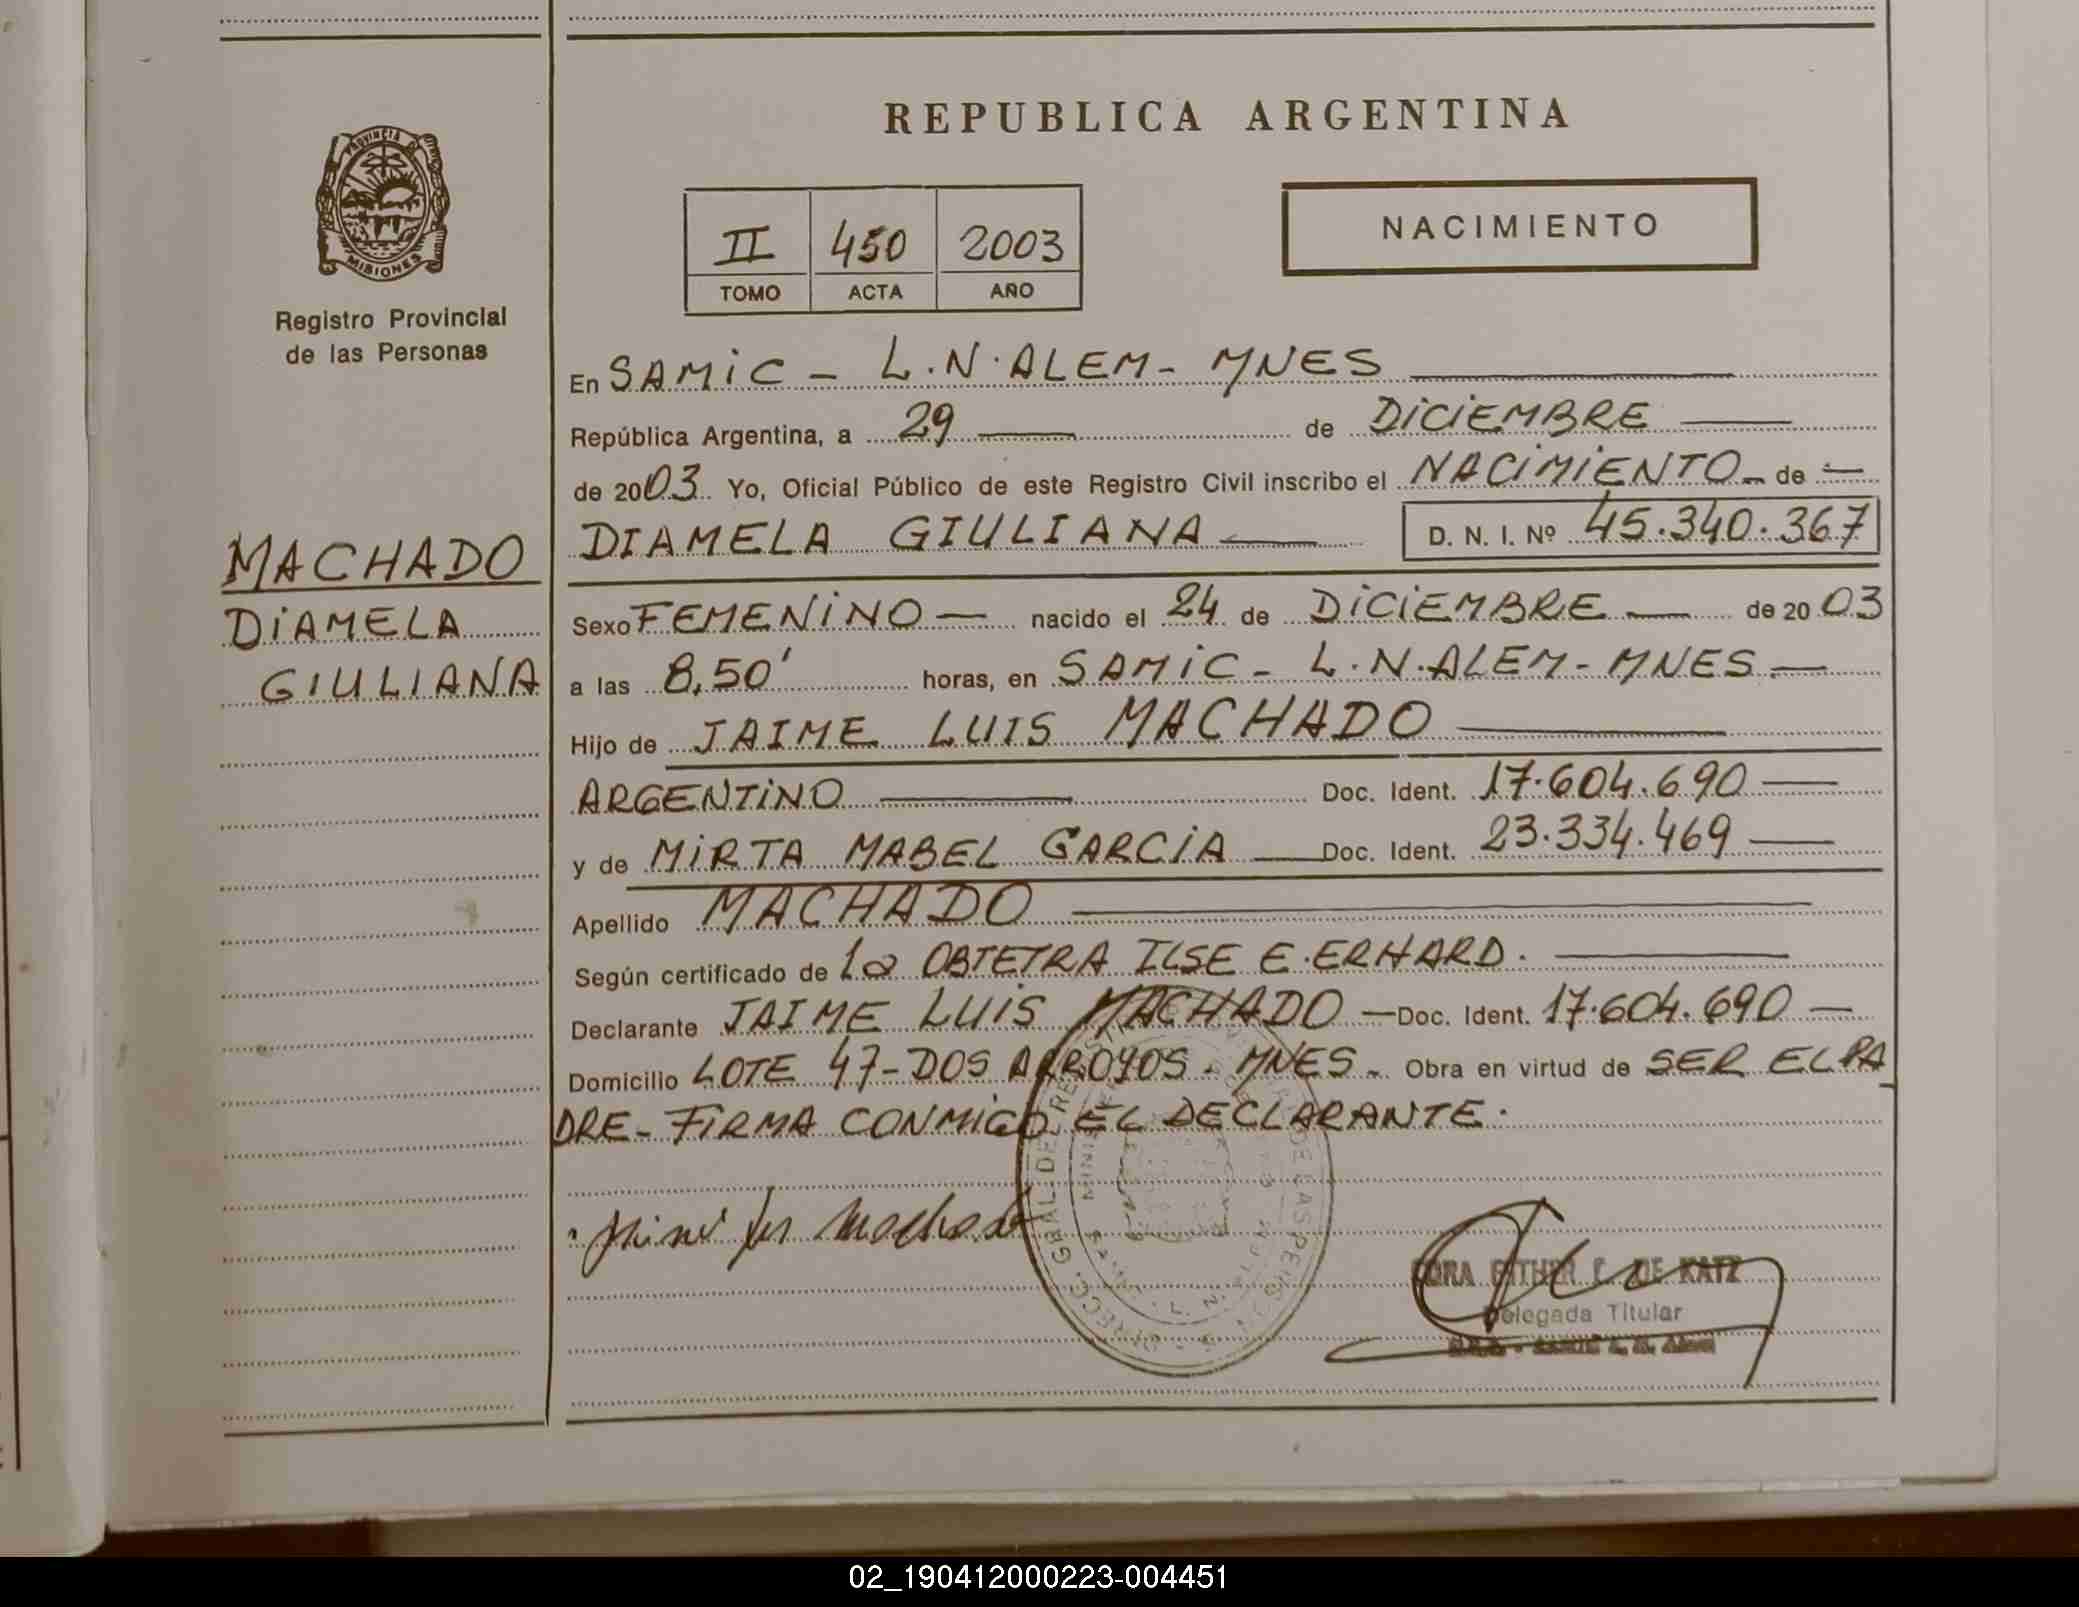 REPUBLICA ARGENTINA
PROVINCIA DE MISIONES
Registro Provincial
de las Personas
II 450 2003
TOMO ACTA AÑO
NACIMIENTO
MACHADO
DIAMELA
GIULIANA
En SAMIC - L.N.ALEM - MNES
República Argentina, a 29 de DICIEMBRE
de 2003 Yo, Oficial Público de este Registro Civil inscribo el NACIMIENTO de
DIAMELA GIULIANA D. N. I. Nº 45.340.367
Sexo FEMENINO nacido el 24 de DICIEMBRE de 2003
a las 8,50' horas, en SAMIC - L.N.ALEM - MNES.
Hijo de JAIME LUIS MACHADO
ARGENTINO Doc. Ident. 17.604.690
y de MIRTA MABEL GARCIA Doc. Ident. 23.334.469
Apellido MACHADO
Según certificado de la OBTETRA ILSE E. ERHARD.
Declarante JAIME LUIS MACHADO Doc. Ident. 17.604.690
Domicilio LOTE 47 - DOS ARROYOS - MNES. Obra en virtud de SER EL PA
DRE - FIRMA CONMIGO EL DECLARANTE.
Machado
DORA ESTHER DE KATZ
Delegada Titular
02_190412000223-004451